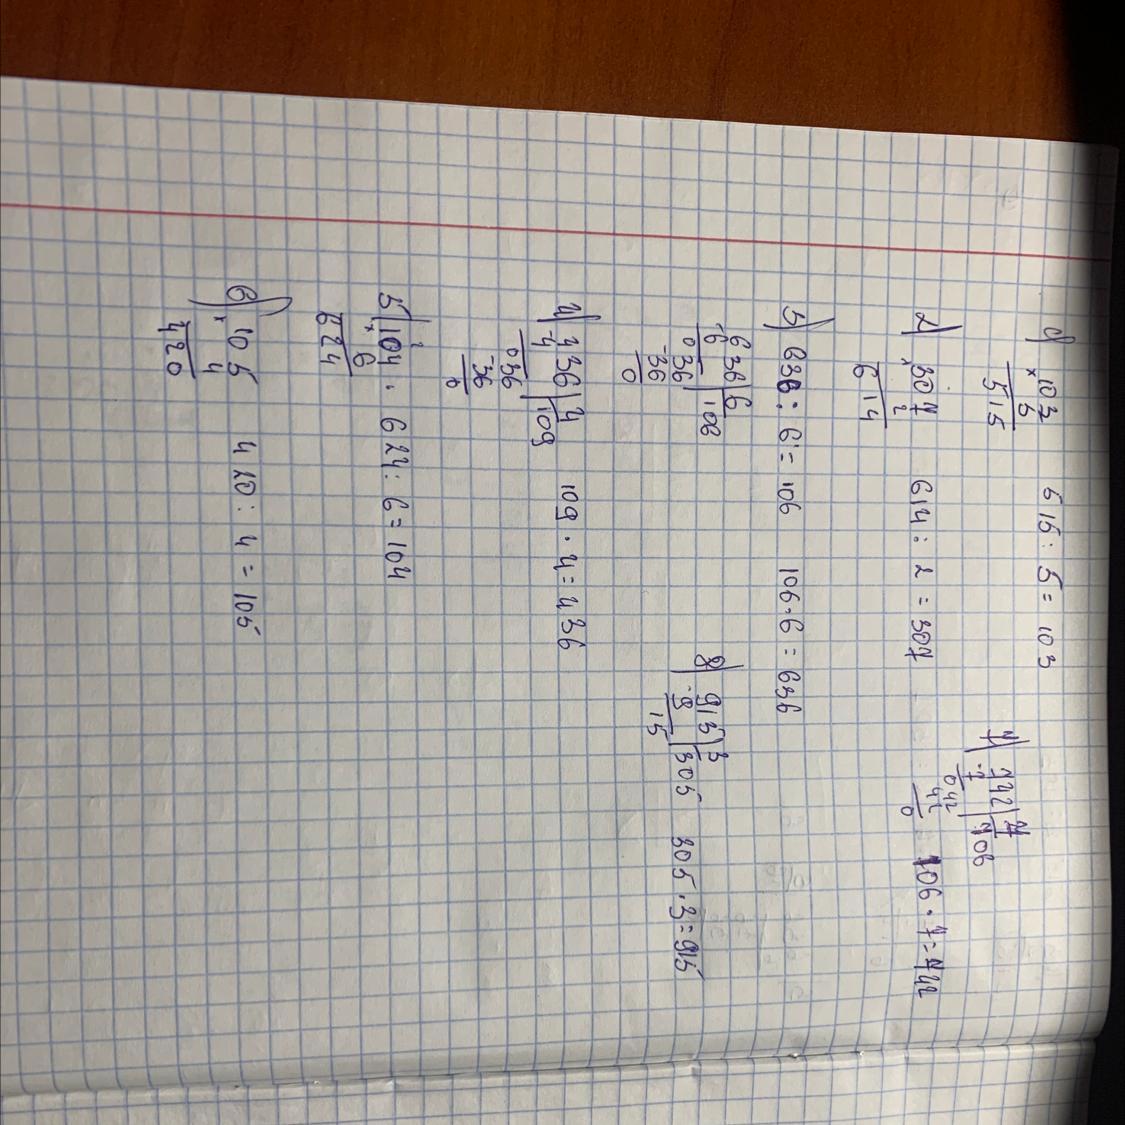 1) × 103
5
515
515 : 5 = 103
2) × 307
2
614
614 : 2 = 307
3) 636 : 6 = 106 106 · 6 = 636
636 | 6
-6 | 106
036
-36
0
4) 436 | 4
-4 | 109
036
-36
0
109 · 4 = 436
2
5) 104 .
× 6
624
624 : 6 = 104
6) × 105
4
420
420 : 4 = 105
7) 742 | 7
-7 | 106
042
42
0
106 · 7 = 742
8) 915 | 3
-9 | 305
15
305 · 3 = 915